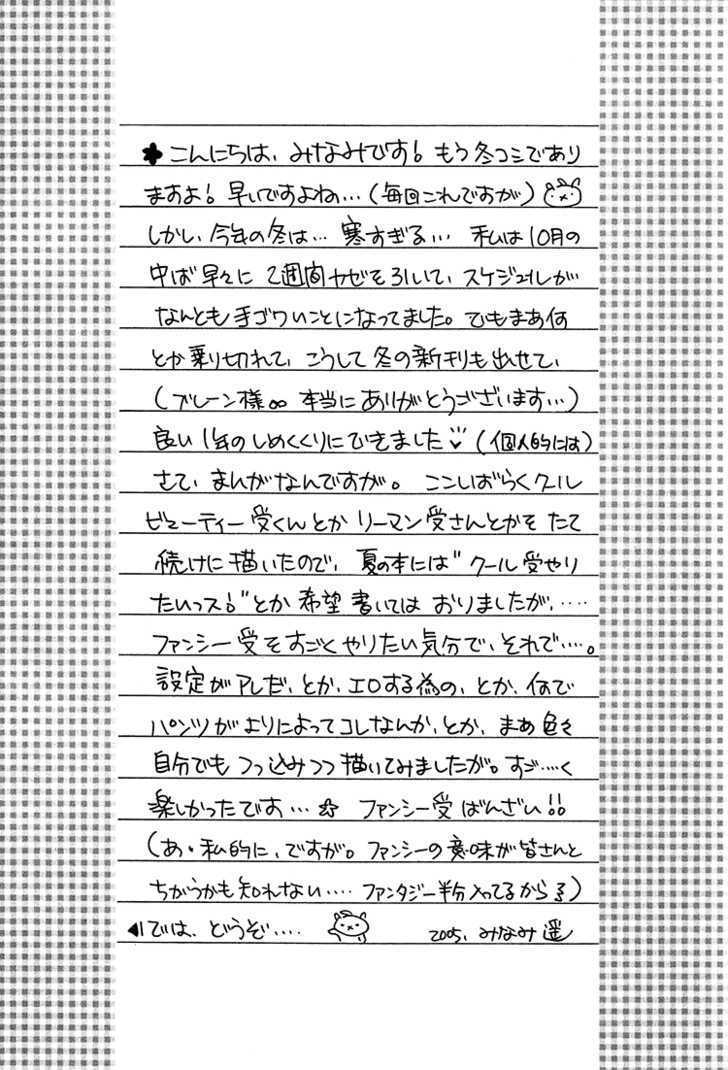 ✱ こんにちは、みなみです! もう冬コミであり
ますよ! 早いですよね…(毎回これですが)
しかし、今年の冬は… 寒すぎる… 私は10月の
中ば早々に 2週間カゼを引いて、スケジュールが
なんとも手ゴワいことになってました。でもまあ何
とか乗り切れて、こうして冬の新刊も出せて、
(ブレーン様∞ 本当にありがとうございます…)
良い1年のしめくくりにできました♡ (個人的には)
さて、まんがなんですが。 ここしばらくクール
ビューティー受くんとか リーマン受さんとかを たて
続けに描いたので、夏の本には"クール受やり
たいっス!"とか希望書いては おりましたが、‥‥
ファンシー受をすごくやりたい気分で、それで‥‥。
設定がアレだ、とか、エロする為の、とか、何で
パンツがよりによってコレなんか、とか、まあ色々
自分でもつっ込みつつ描いてみましたが。すご‥‥く
楽しかったです…☆ ファンシー受ばんざい!!
(あ・私的に、ですが。ファンシーの意味が皆さんと
ちがうかも知れない‥‥ ファンタジー半分入ってるから ろ)
◀では、どうぞ‥‥ 2005、みなみ 遥